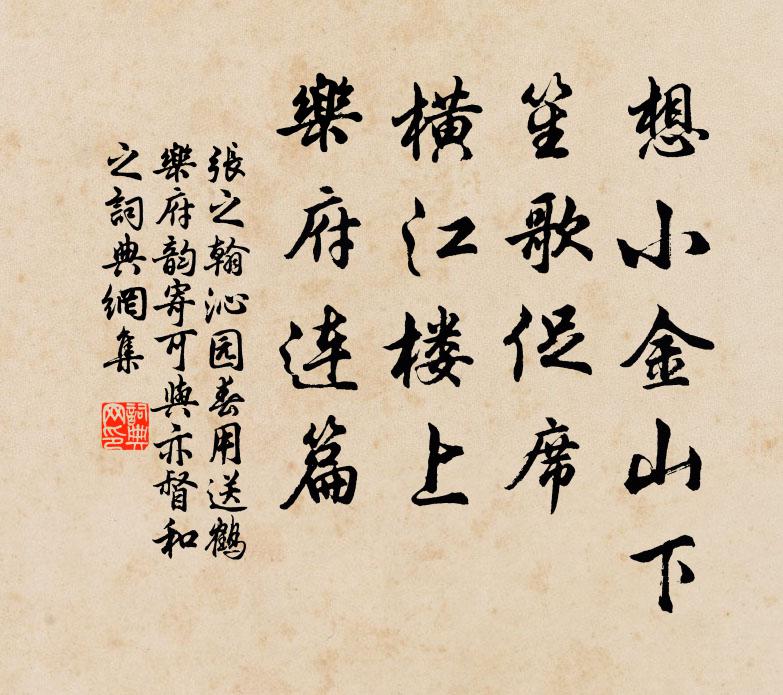 想小金山下
笙歌促席
横江楼上
樂府连篇
張之翰沁园春用送鶴
樂府韵寄可與亦督和
之詞典網集
詞典
网印